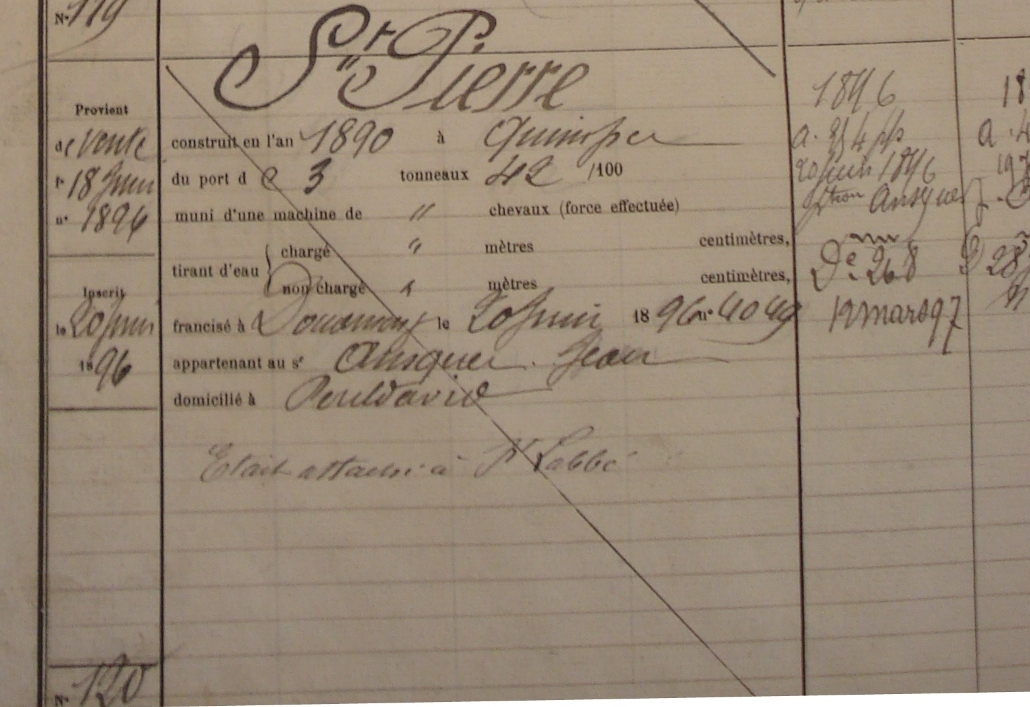 N° 119
St Pierre
Provient
de Vente
construit en l'an 1890 à Quimper
le 18 Juin
du port de 3 tonneaux 42 /100
n° 1896
muni d'une machine de " chevaux (force effectuée)
tirant d'eau { chargé " mètres centimètres,
non chargé " mètres centimètres,
Inscrit
le 20 Juin
1896
francisé à Douarnenez le 20 Juin 1896 n° 4049
appartenant au sr Ansquer Jean
domicilié à Pouldavid
Etait attaché à St Labbé
N° 120
1896
20 Juin 1896
Ansquer
De 268
12 mars 97